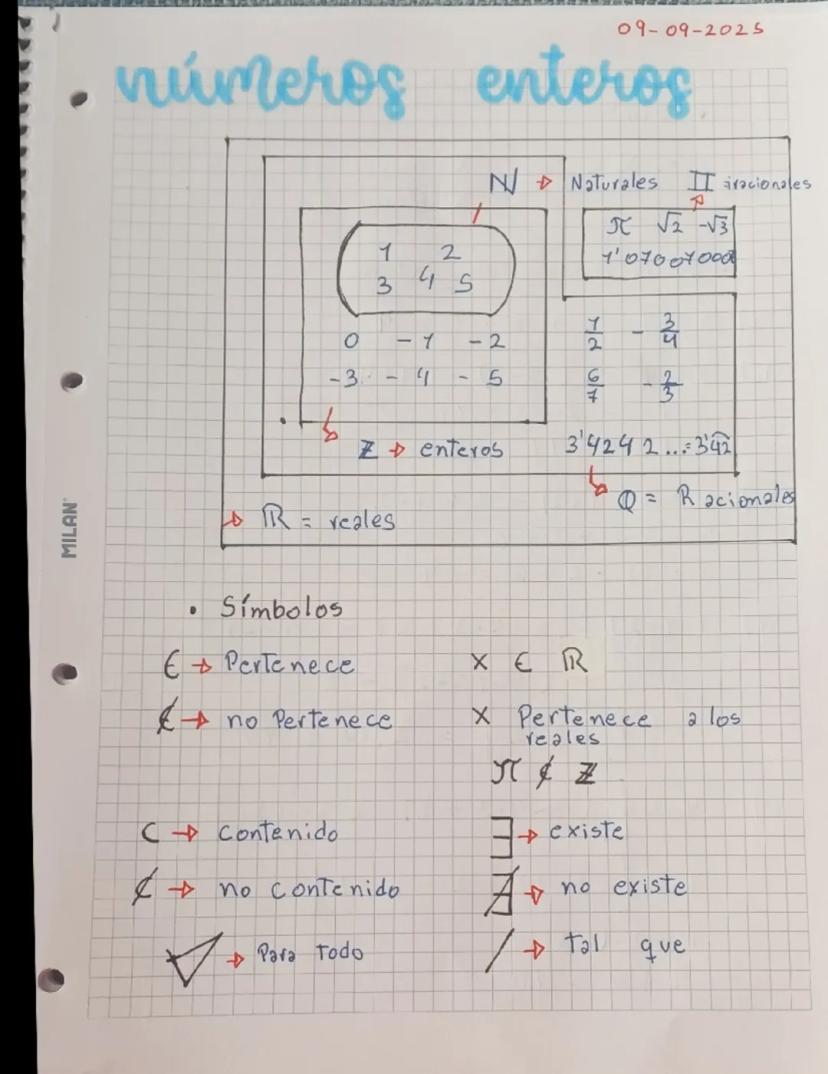 09-09-2025
números enteros
N → Naturales II iracionales
π √2 -√3
1'07007000
1 2
3 4 5
0 -1 -2
-3 -4 -5
1/2 - 3/4
6/7 - 2/3
3'4242...=3'42
Z → enteros
Q = Racionales
R = reales
MILAN
• Símbolos
∈ → Pertenece
x ∈ R
∉ → no Pertenece
x Pertenece a los
reales
π ∉ Z
⊂ → contenido
∃ → existe
⊄ → no contenido
∄ → no existe
∀ → Para Todo
/ → tal que